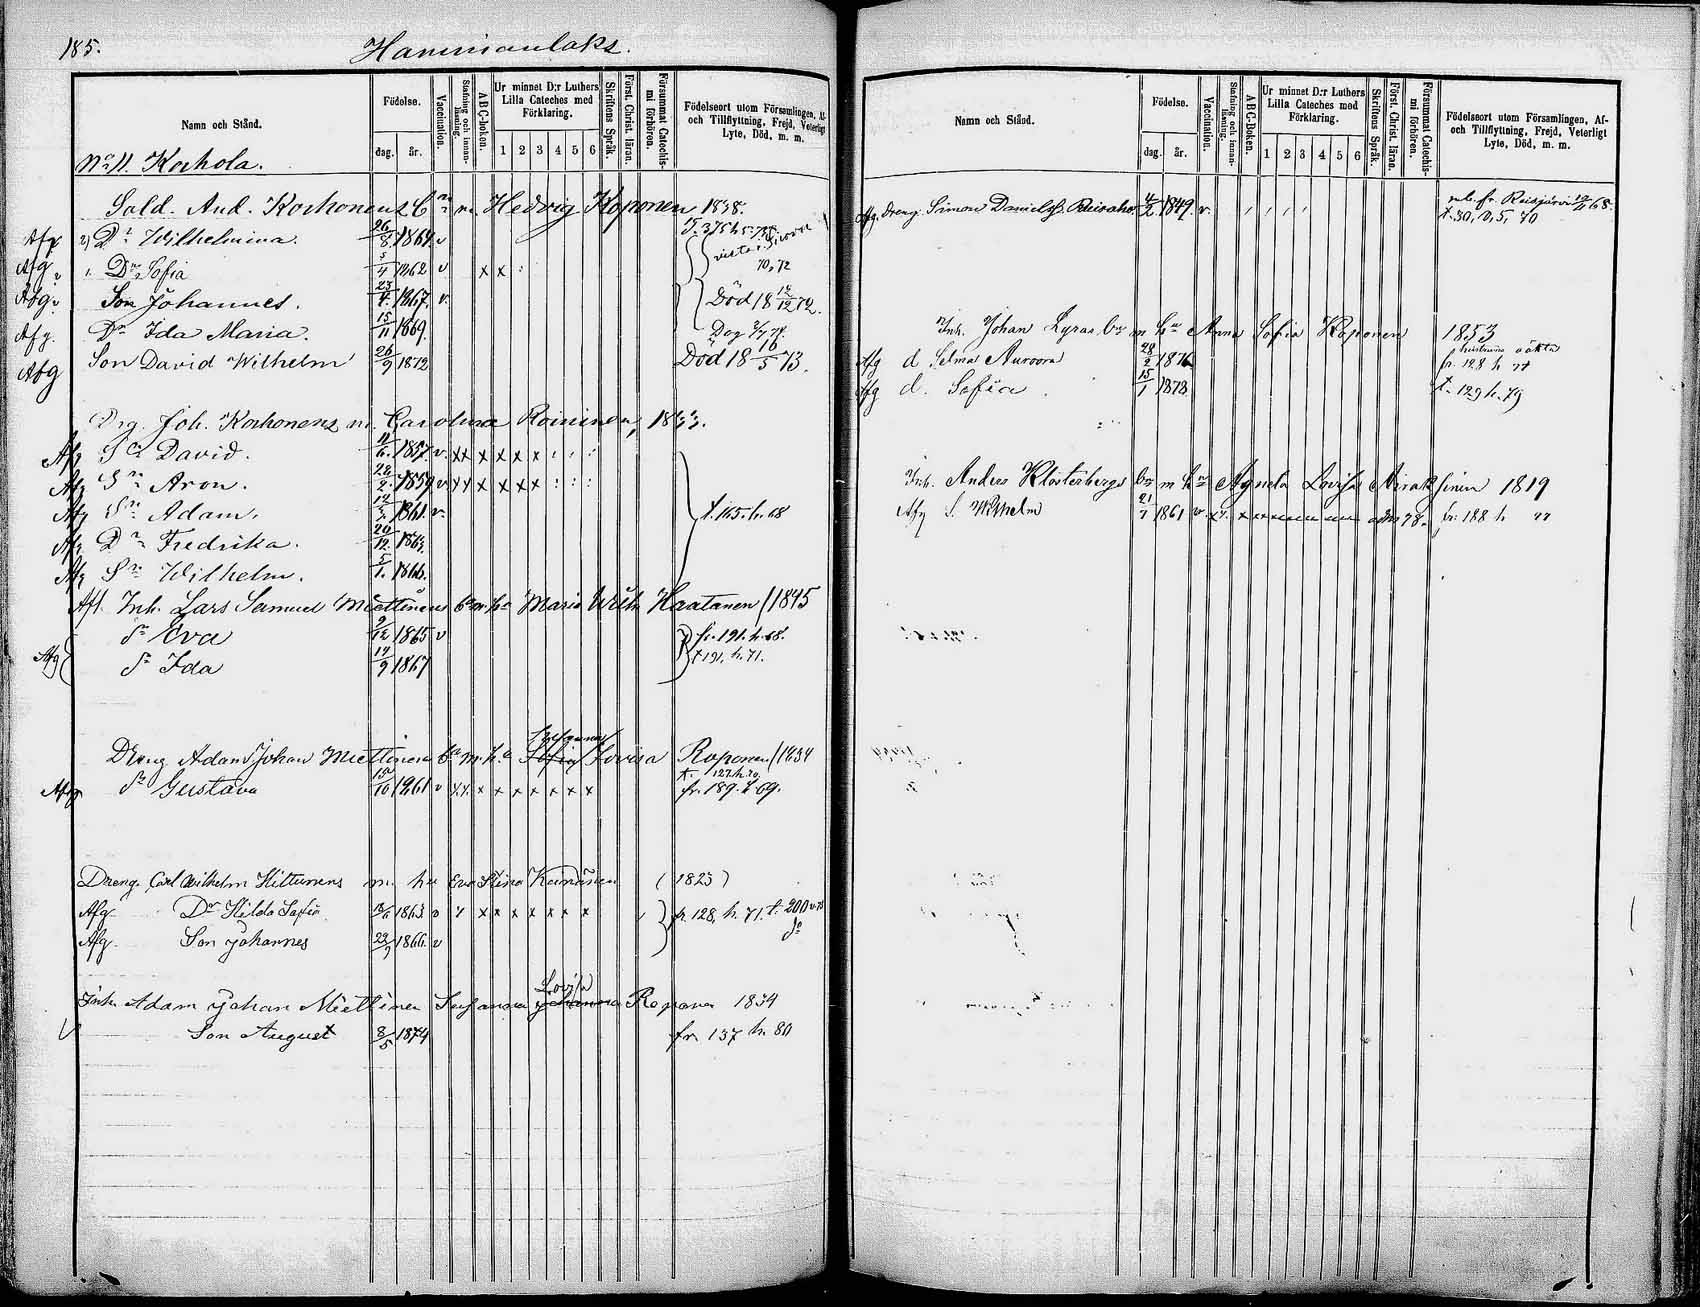 185.
Hamminanlaks.
Namn och Stånd.
Födelse.
dag.
år.
Vaccination.
Stafning och innan-läsning.
ABC-boken.
Ur minnet D:r Luthers Lilla Cateches med Förklaring.
1 2 3 4 5 6
Skriftens Språk.
Först. Christ. läran.
Försummat Catechis-mi förhören.
Födelseort utom Församlingen, Af- och Tillflyttning, Frejd, Veterligt Lyte, Död, m. m.
No 11. Korhola.
Sold. And. Korhonens Hedvig Koponen 1838.
Afg Dr Wilhelmina. 26/8 1864 v
Afg Dr Sofia 5/4 1862 v x x
70, 72
Afg Son Johannes. 23/4 1867 v. Död 18 12/12 72.
Afg. Dr Ida Maria. 15/11 1869.
Afg Son David Wilhelm 26/9 1872 Död 18 16/5 73.
Drg. Joh. Korhonens m. Carolina Roininen, 1833.
Afg Sn David. 11/6 1857 v. x x x x x x
Afg Sn Aron. 28/2 1859 v x x x x x x
Afg Sn Adam. 1861. v. t. 165. h. 68
Afg Dr Fredrika. 20/12 1863
Afg Sn Wilhelm. 5/1 1866.
Afl. Inh. Lars Samuel Miettinens ba m. ha Maria Wilh. Haatanen / 1845
dr Eva 9/12 1865 v fr. 191. h. 68.
Afg dr Ida 17/9 1867 t 191. h. 71.
Dreng Adam Johan Miettinens ba m. ha Sofia Susanna Lovisa Roponen / 1834
t. 127. h. 70.
Afg dr Gustava 15/10 1861 v x x x x x x x x x fr. 189. h. 69.
Dreng. Carl Wilhelm Hiltunens m. hu Eva Stina Kainänen (1823)
Afg. Dr Hilda Sofia 1863 v x x x x x x x fr. 128, h. 71. t. 200
Afg. Son Johannes 23/9 1866. v do
Inh. Adam Johan Miettinen Susanna Johanna Lovisa Roponen 1834
Son August 8/5 1874 fr. 137 h. 80
Namn och Stånd.
Födelse.
dag.
år.
Vaccination.
Stafning och innan-läsning.
ABC-Boken.
Ur minnet D:r Luthers Lilla Cateches med Förklaring.
1 2 3 4 5 6
Skriftens Språk.
Först. Christ. läran.
Försummat Catechis-mi förhören.
Födelseort utom Församlingen, Af- och Tillflyttning, Frejd, Veterligt Lyte, Död, m. m.
Afg. Dreng. Simon Danielss. 1849. v. fr. Reisjärvi 68.
t. 30, 2, 5, 70
Inh. Johan Lyras br m hu Anna Sofia Koponen 1853
Afg d Selma Auroora 28/2 1876 fr. 128 h 77
Afg d. Sofia 15/1 1878 t. 129 h. 79
Inh. Anders Klösterbergs br m hu Agneta Lovisa 1819
Afg S. Wilhelm 21/7 1861 v. fr. 188 h 77